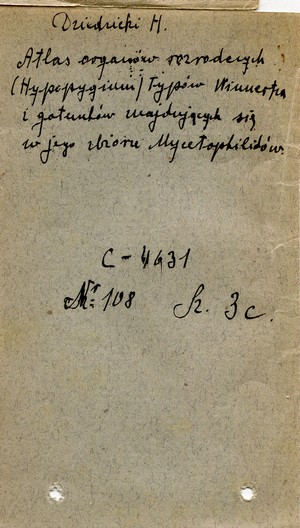 Dziedzicki H.
Atlas organów rozrodczych
(Hypopygium) typów Winnertza
i gatunków znajdujących się
w jego zbiorze Mycetophilidów.
C-4631
Nr. 108 Sz. 3c.